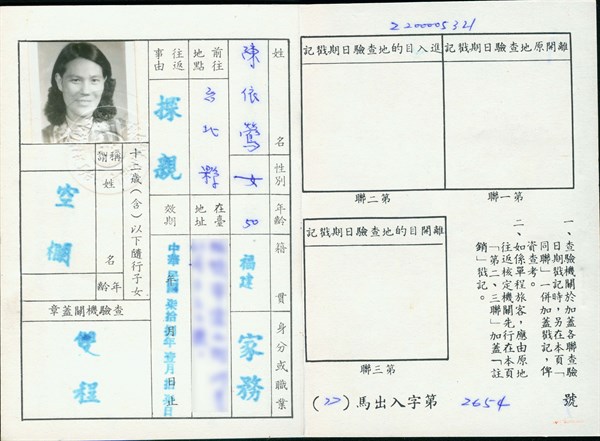 Z200005321
離開原地查驗日期戳記
進入目的地查驗日期戳記
第一聯
第二聯
離開目的地查驗日期戳記
第三聯
一、查驗機關於加蓋各聯查驗
日期戳記時,另在本頁「
同聯」一併加蓋戳記,俾
資查考。
二、如係單程旅客,應由原
往返核定機關先行在本頁
「第二、三聯」加蓋「註
銷」戳記。
(22)馬出入字第 2654 號
姓名
陳依鶯
性別
女
年齡
50
籍貫
福建
身分或職業
家務
前往地點
台北縣
在臺地址
往返事由
探親
效期
中華民國柒拾
年
月
日止
十二歲(含)以下隨行子女
稱謂
姓名
年齡
空欄
查驗機關蓋章
雙程